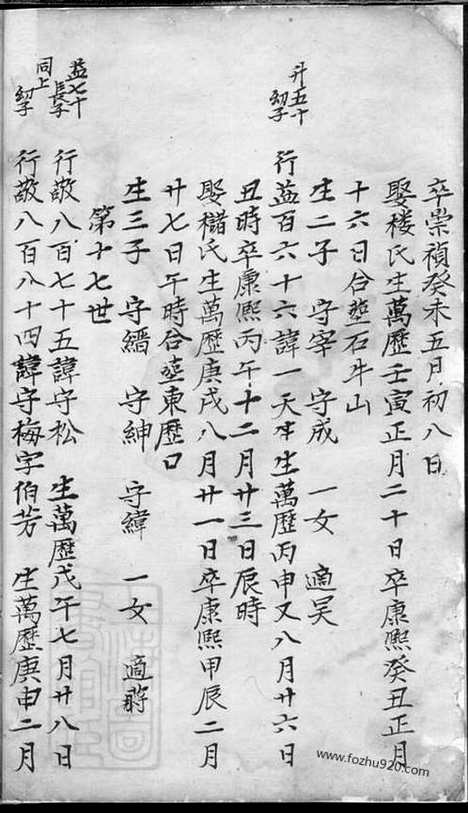 卒崇禎癸未五月初八日
娶楼氏生萬歷壬寅正月二十日卒康熙癸丑正月
十六日合塟石牛山
生二子 守宰 守成 一女 適吴
升五十 幼子
行益百六十六諱一天 生萬歷丙申又八月廿六日
丑時卒康熙丙午十二月廿三日辰時
娶楮氏生萬歷庚戌八月廿一日卒康熙甲辰二月
廿七日午時合塟東歷口
生三子 守縉 守紳 守緯 一女 適蔣
第十七世
益七十 長子
行敬八百七十五諱守松 生萬歷戊午七月廿八日
同上 幼子
行敬八百八十四諱守梅字伯芳 生萬歷庚申二月
www.fozhu920.com